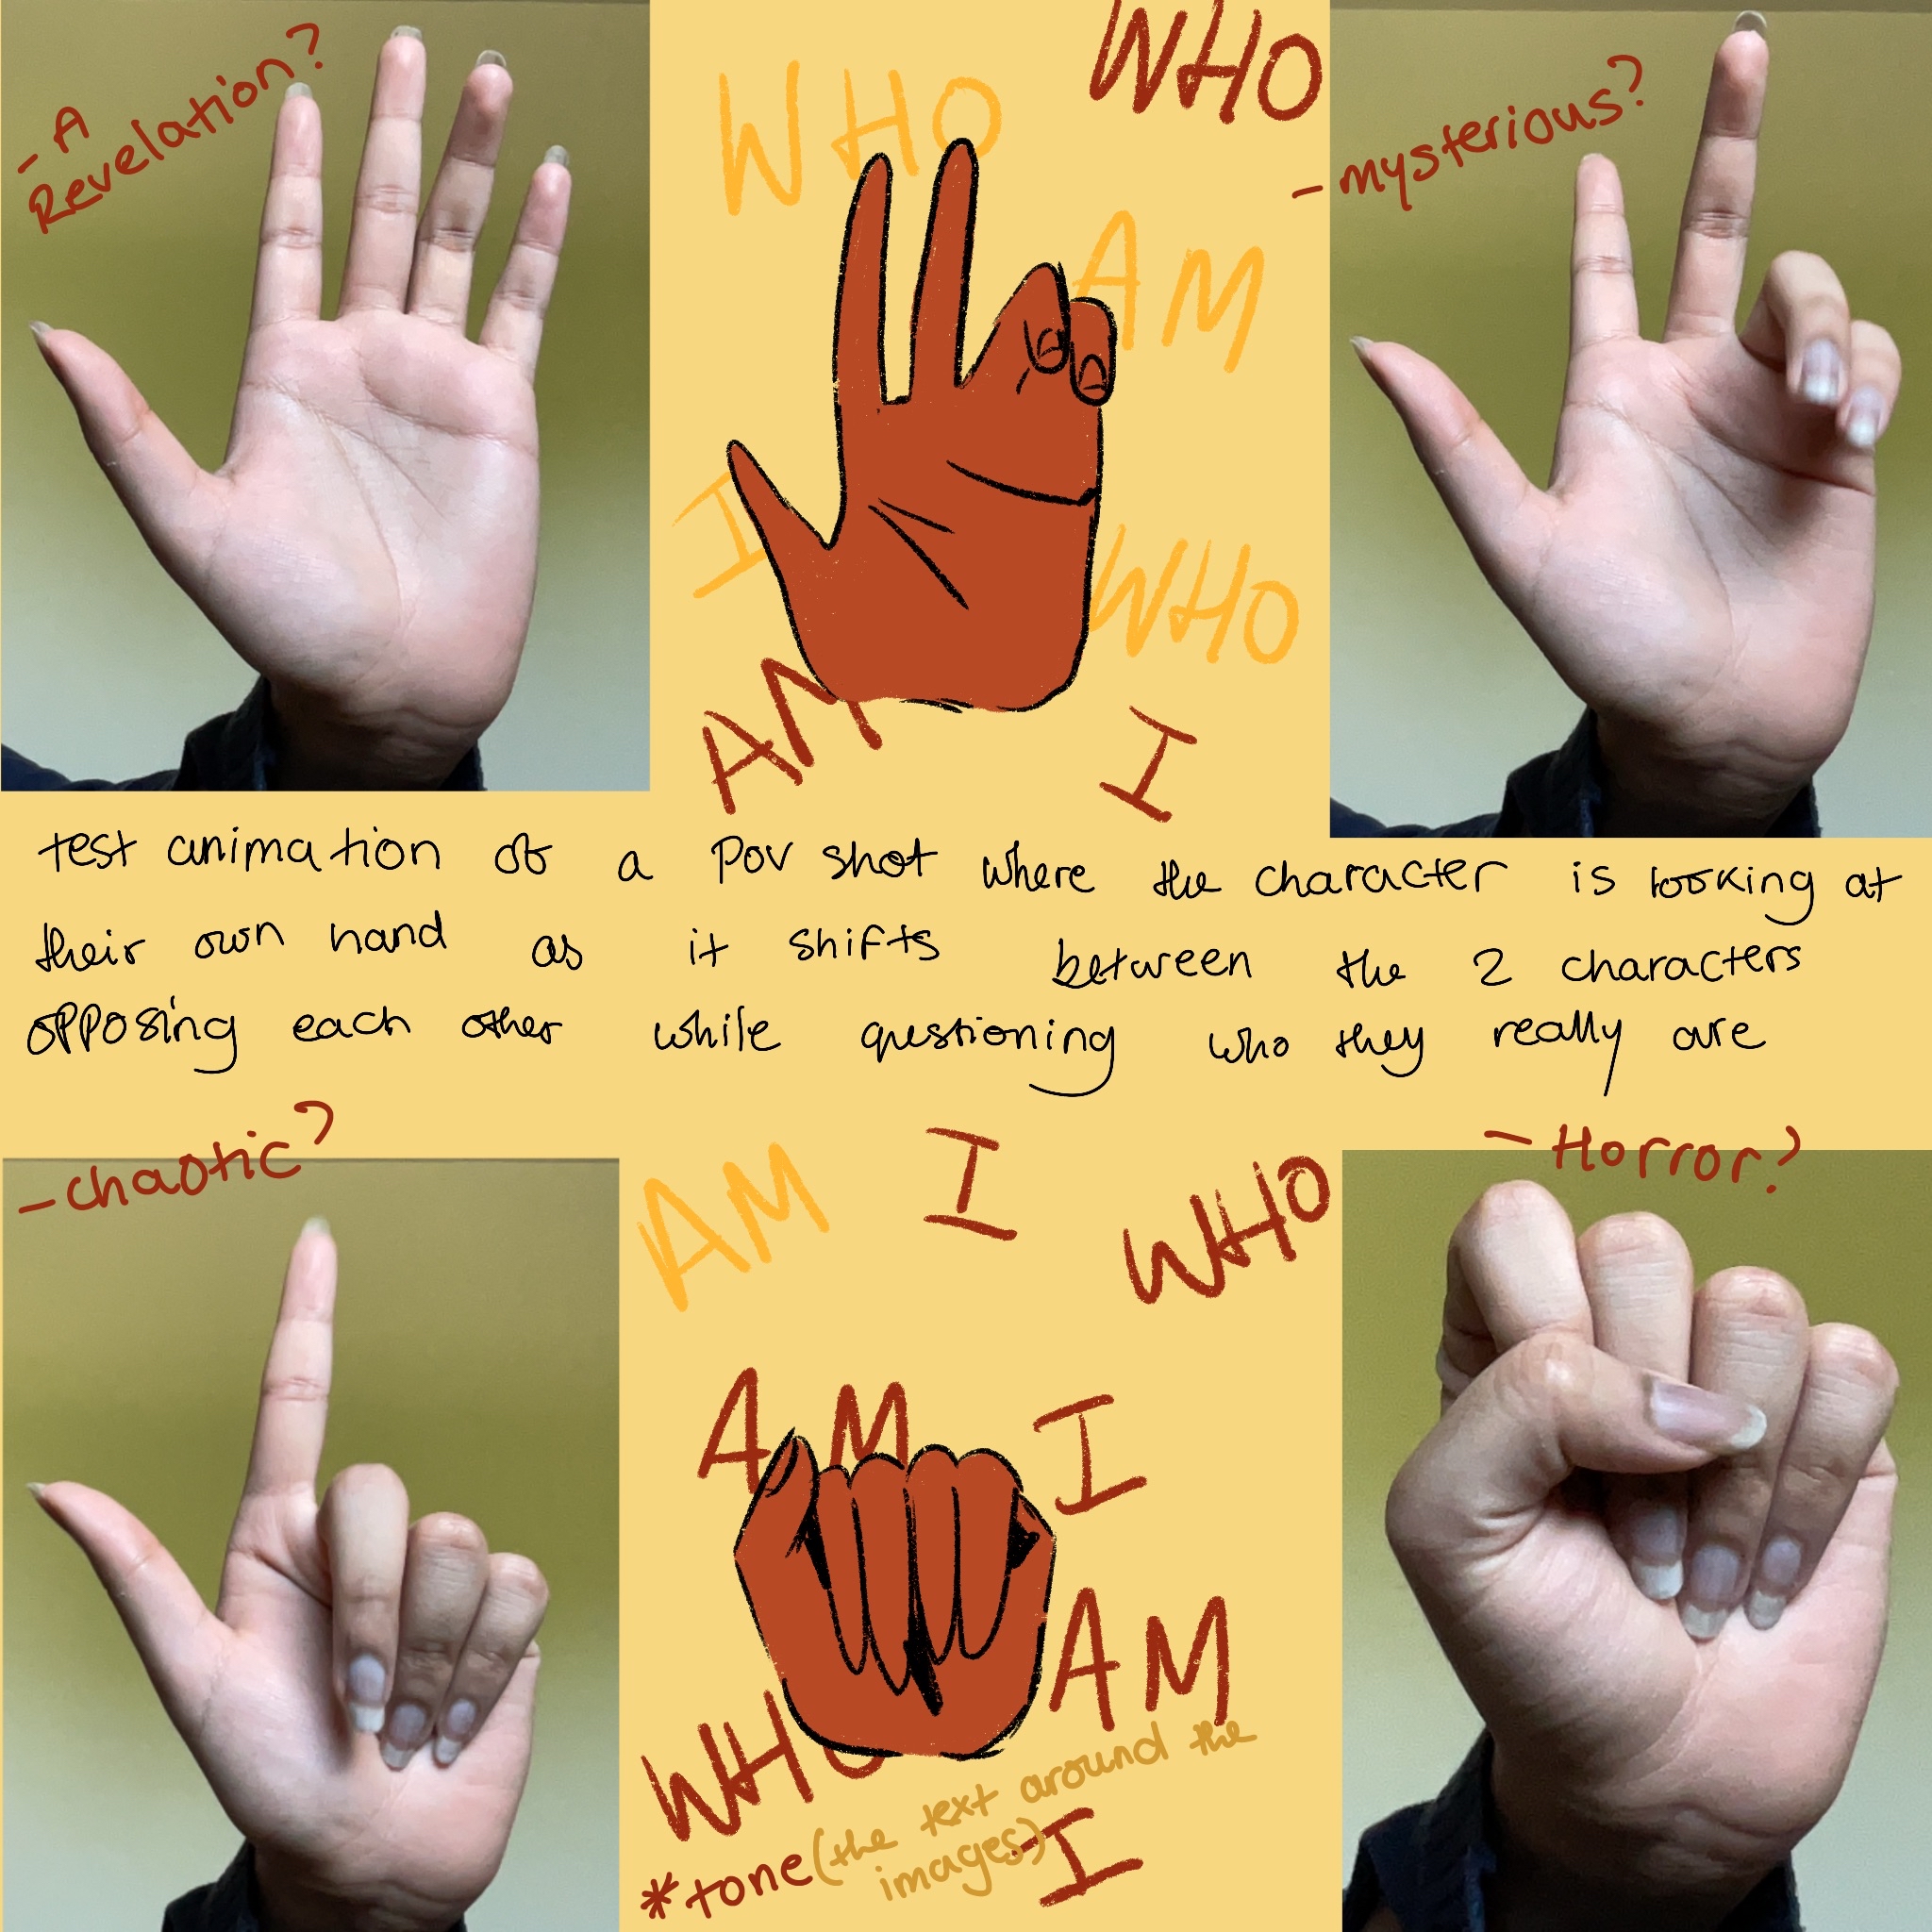 - A
Revelation?
WHO
WHO
- mysterious?
AM
I
WHO
AM
I
test animation of a POV shot where the character is looking at
their own hand as it shifts between the 2 characters
opposing each other while questioning who they really are
- chaotic?
- Horror?
AM
I
WHO
AM
I
AM
WHO
I
*tone (the text around the
images)